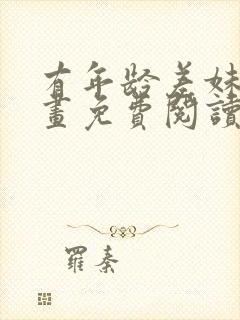 有年龄差妹
畫免費閱讀
羅秦